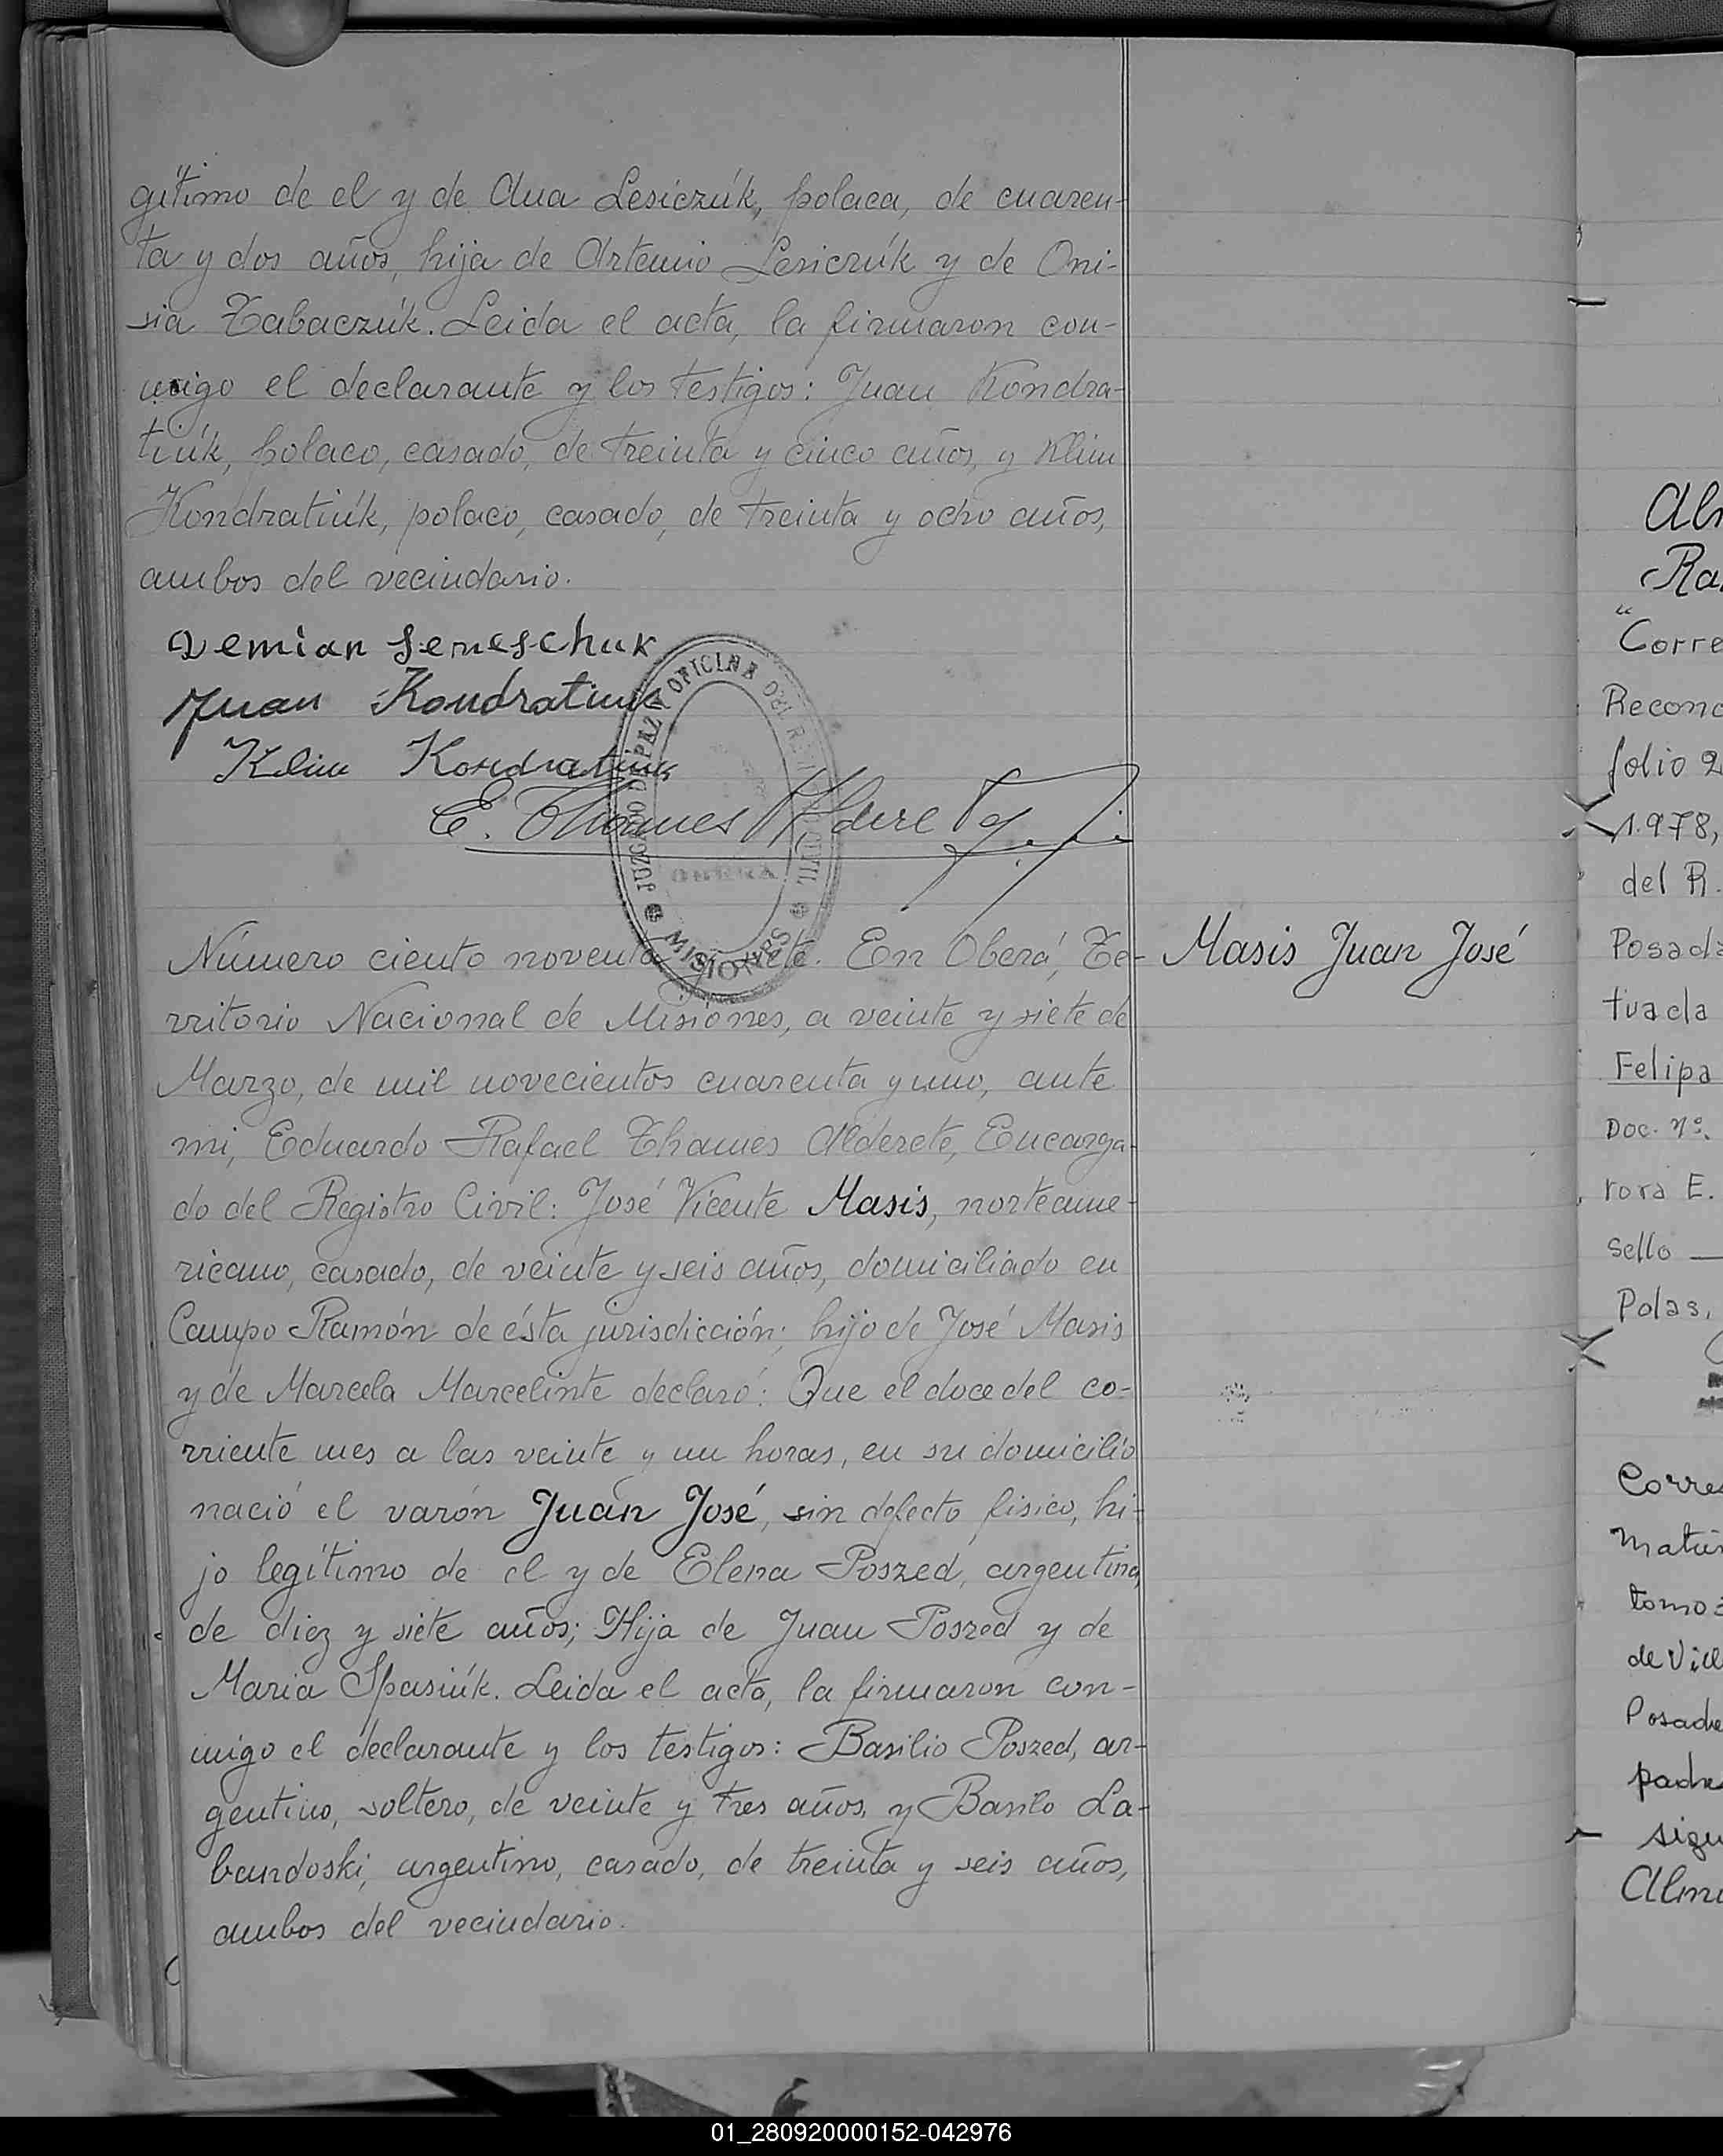 gítimo de el y de Ana Lesiczúk, polaca, de cuaren-
ta y dos años, hija de Artemio Lesiczúk y de Oni-
sia Tabaczúk. Leida el acta, la firmaron con-
migo el declarante y los testigos: Juan Kondra-
tiúk, polaco, casado, de treinta y cinco años, y Klim
Kondratiúk, polaco, casado, de treinta y ocho años,
ambos del vecindario.
Demian Semeschuk
Juan Kondratiuk
Klim Kondratiuk
E. Thames Alderete
JUZGADO DE PAZ OFICINA DEL REGISTRO CIVIL
OBERA
MISIONES
Número ciento noventa y siete. En Oberá, Te-
rritorio Nacional de Misiones, a veinte y siete de
Marzo, de mil novecientos cuarenta y uno, ante
mi, Eduardo Rafael Thames Alderete, Encarga-
do del Registro Civil: José Vicente Masis, norteame-
ricano, casado, de veinte y seis años, domiciliado en
Campo Ramón de ésta jurisdicción; hijo de José Masis
y de Marcela Marcelinte declaró: Que el doce del co-
rriente mes a las veinte y un horas, en su domicilio
nació el varón Juan José, sin defecto fisico, hi-
jo legítimo de el y de Elena Poszed, argentina,
de diez y siete años; Hija de Juan Poszed y de
Maria Spasiúk. Leida el acta, la firmaron con-
migo el declarante y los testigos: Basilio Poszed, ar-
gentino, soltero, de veinte y tres años, y Basilo La-
bandoski, argentino, casado, de treinta y seis años,
ambos del vecindario.
Masis Juan José
Corre
Recono
folio 2
1.978,
del R.
Posada
tuada
Felipa
Doc. Nº.
rora E.
sello
Polas,
Corres
matri
tomo
de Vill
Posada
padre
sigu
01_280920000152-042976